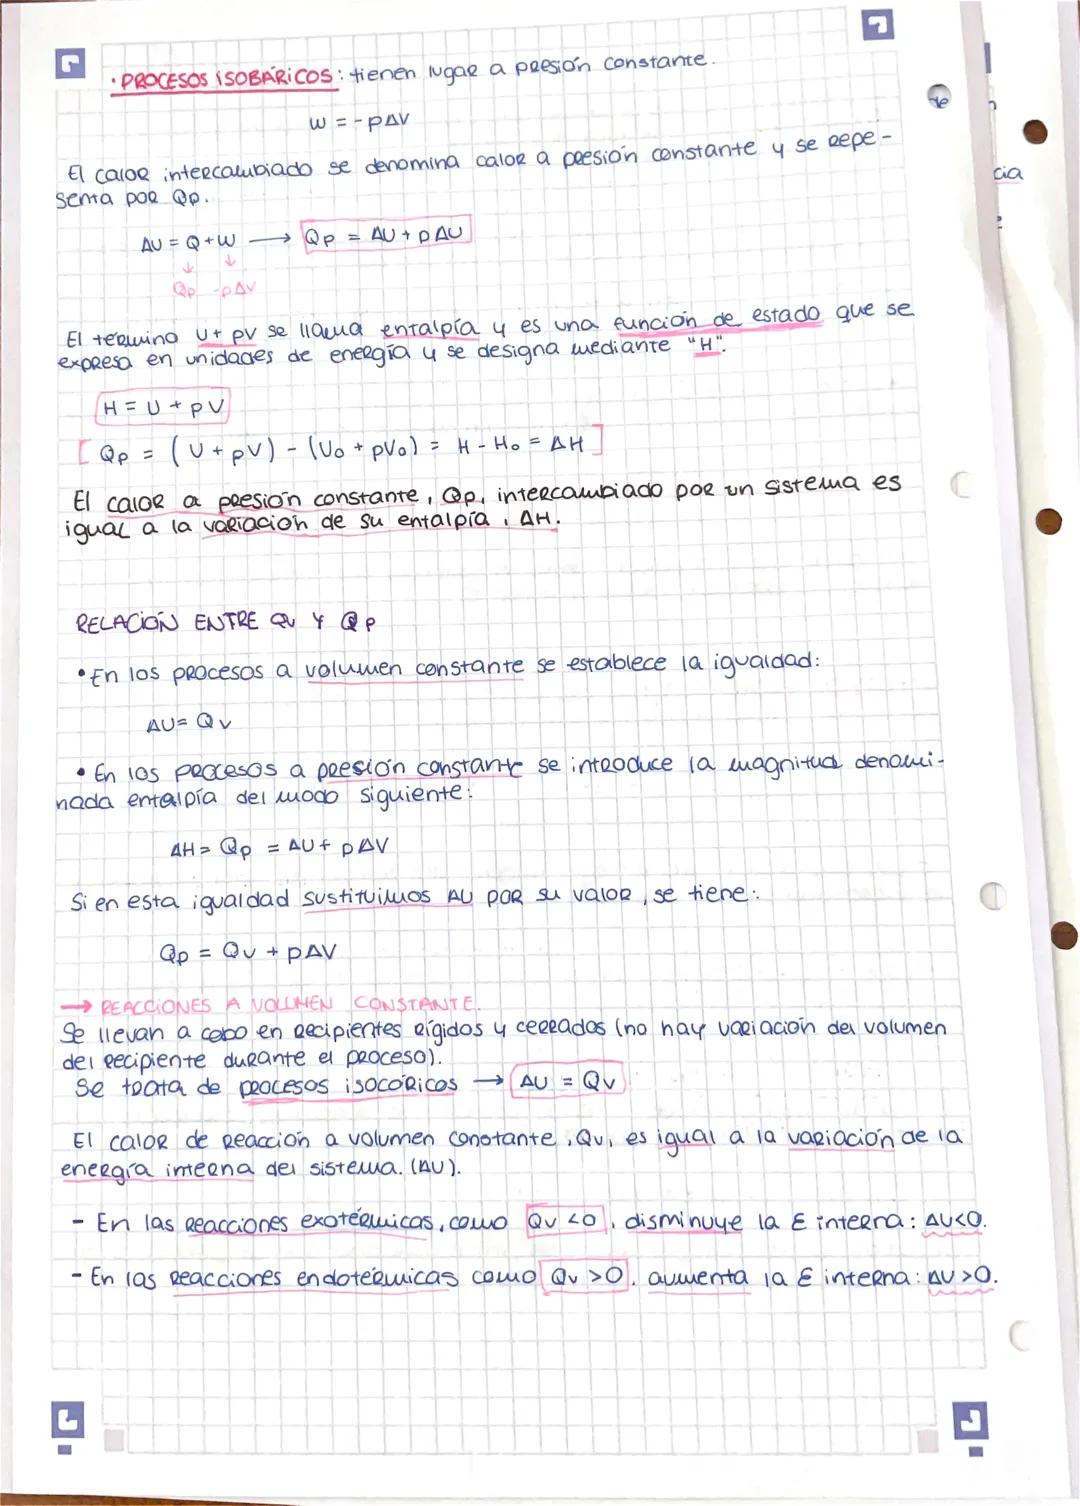 · PROCESOS ISOBÁRICOS: tienen lugar a presión constante.
W = - pΔV
El calor intercambiado se denomina calor a presión constante y se repe-
senta por Qp.
ΔU = Q + W → Qp = ΔU + pΔU
↓ ↓
Qp -pΔV
El término U + pV se llama entalpía y es una función de estado que se
expresa en unidades de energía y se designa mediante "H".
H = U + pV
[ Qp = (U + pV) - (U₀ + pV₀) = H - H₀ = ΔH ]
El calor a presión constante, Qp, intercambiado por un sistema es
igual a la variación de su entalpía, ΔH.
RELACIÓN ENTRE QV Y QP
• En los procesos a volumen constante se establece la igualdad:
ΔU = Qv
• En los procesos a presión constante se introduce la magnitud denomi-
nada entalpía del modo siguiente:
ΔH = Qp = ΔU + pΔV
Si en esta igualdad sustituimos ΔU por su valor, se tiene:
Qp = Qv + pΔV
→ REACCIONES A VOLUMEN CONSTANTE.
Se llevan a cabo en recipientes rígidos y cerrados (no hay variación del volumen
del recipiente durante el proceso).
Se trata de procesos isocóricos → ΔU = Qv
El calor de reacción a volumen constante, Qv, es igual a la variación de la
energía interna del sistema. (ΔU).
- En las reacciones exotérmicas, como Qv <0, disminuye la E interna: ΔU<0.
- En las reacciones endotérmicas como Qv >0, aumenta la E interna: ΔU >0.
te
cia